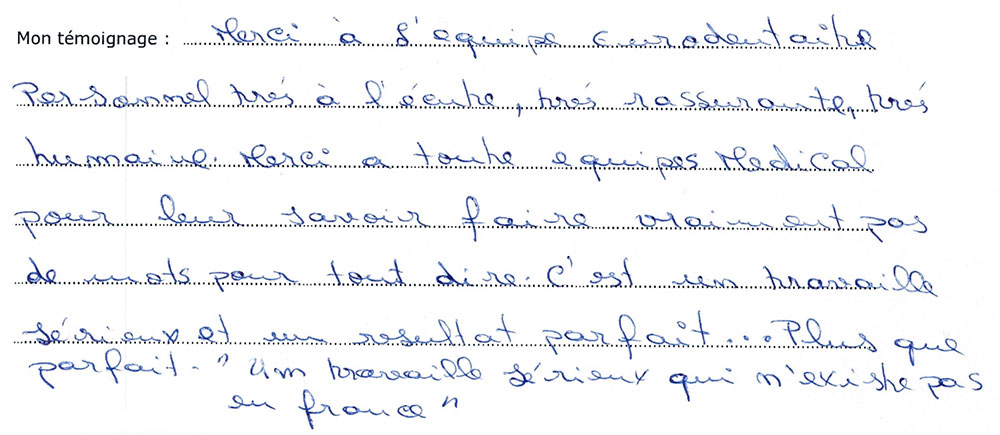 Mon témoignage : Merci à l'equipe Eurodentaire
Personnel très à l'écoute, très rassurante, très
humaine. Merci a toute equipes Medical
pour leur savoir faire vraiment pas
de mots pour tout dire. C'est un travaille
sérieux et un resultat parfait... Plus que
parfait. "Un travaille sérieux qui n'existe pas
en france"